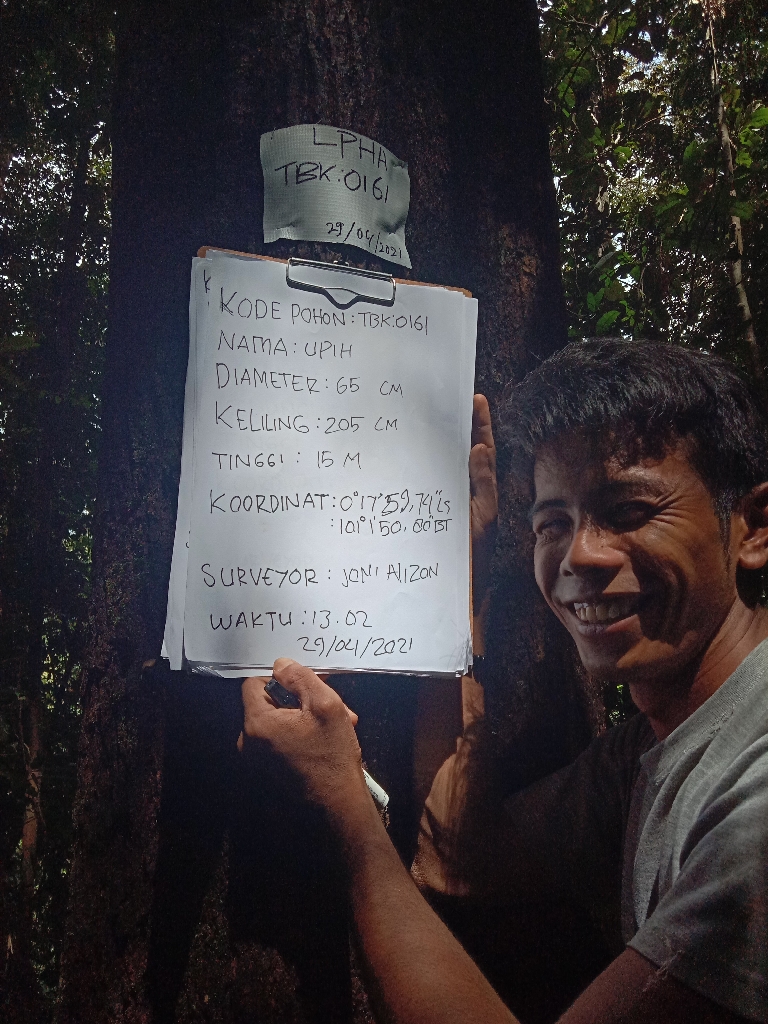 LPHA
TBK:0161
29/04/2021
KODE POHON: TBK:0161
NAMA: UPIH
DIAMETER: 65 CM
KELILING: 205 CM
TINGGI: 15 M
KOORDINAT: 0°17'59,74"LS
: 101°1'50, 60"BT
SURVEYOR: JONI ALIZON
WAKTU: 13.02
29/04/2021